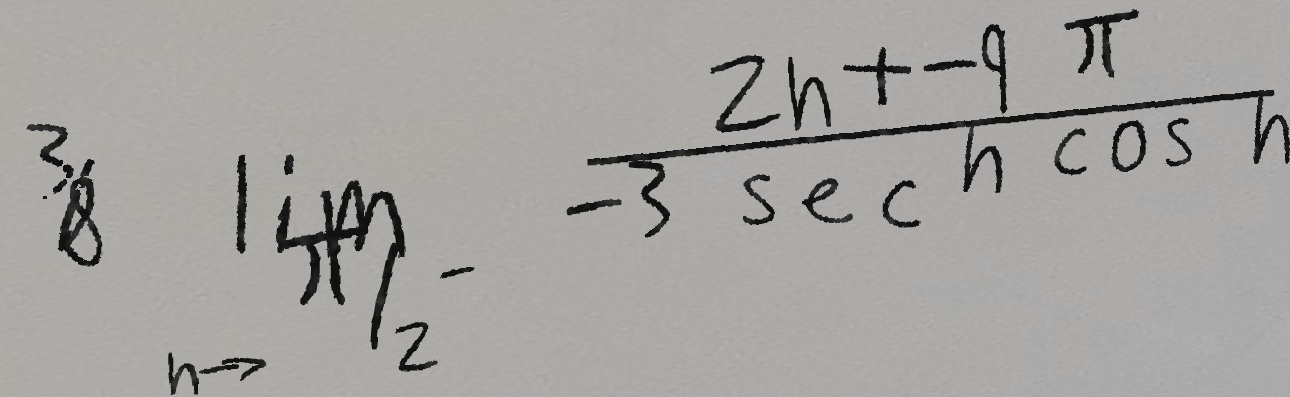 3/8 lim_{h→π/2^-} \frac{2h+-9π}{-3 sec h cos h}